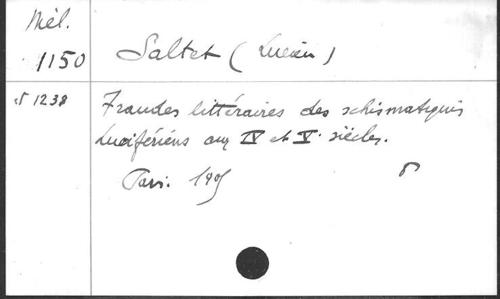 Mél.
1150
Saltet (Lucien)
5 1238
Fraudes littéraires des schismatiques
Lucifériens aux IV et V. siècles.
Paris. 190